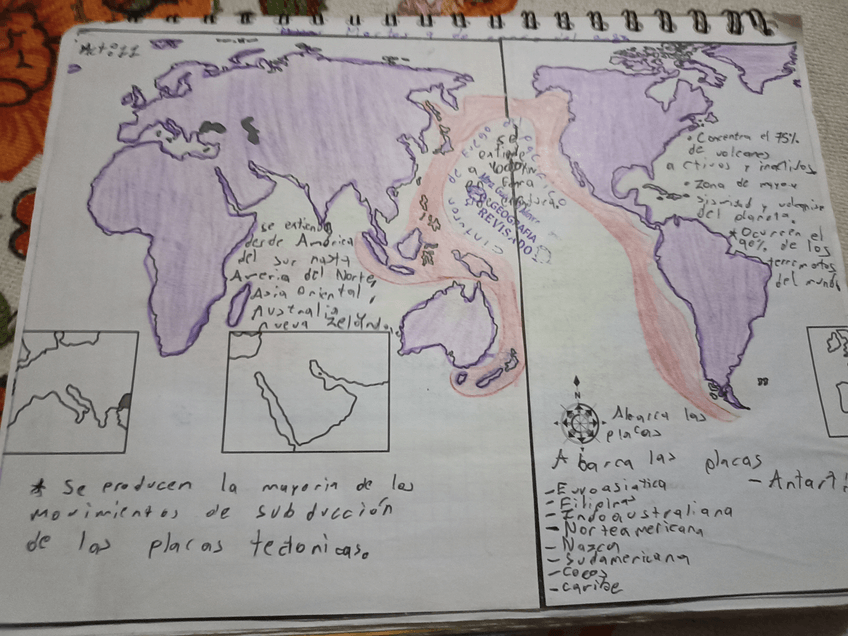 Act: 11
Martes 9 de
Cinturon de Fuego del Pacifico
se
extiende
forma
herradura.
GEOGRAFIA
REVISADO
• Concentra el 75%
de volcanes
activos y inactivos
• zona de mayor
sismidad y
del planeta.
* Ocurren el
90% de los
terremotos
del mundo
se extiende
desde América
del sur hasta
America del Norte,
Asia oriental,
Australia
nueva zelánda.
N
Abarca las
placas
Abarca las placas
- Euroasiatica
- Filipinas
- Indoaustraliana
- Norteamericana
- Nazca
- Sudamericana
- Cocos
- caribe
- Antart
* Se producen la mayoria de los
movimientos de subducción
de las placas tectonicas.